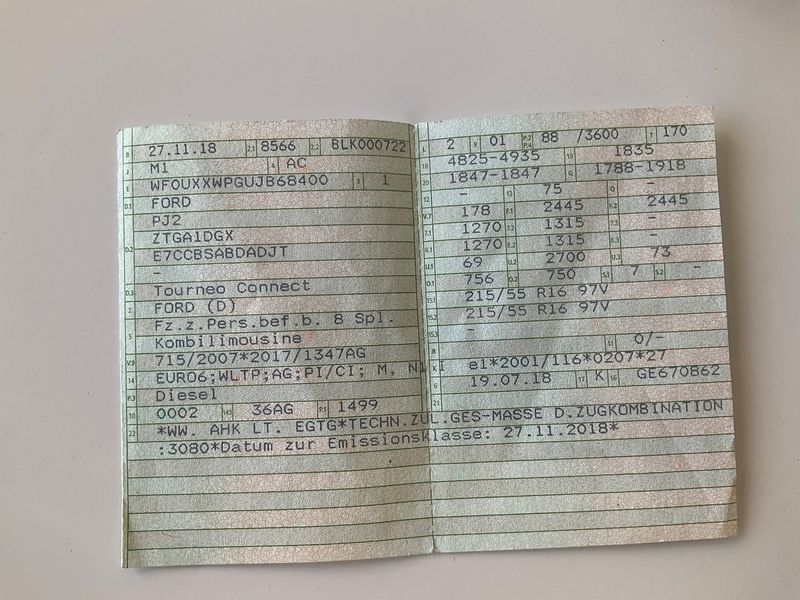 B 27.11.18 2.1 8566 2.2 BLK000722
J M1 4 AC
E WF0UXXWPGUJB68400 3 1
D.1 FORD
PJ2
D.2 ZTGA1DGX
E7CCBSABDADJT
-
D.3 Tourneo Connect
2 FORD (D)
5 Fz.z.Pers.bef.b. 8 Spl.
Kombilimousine
V.9 715/2007*2017/1347AG
14 EURO6;WLTP;AG;PI/CI; M, N1 I
P.3 Diesel
10 0002 14.1 36AG P.1 1499
22 *WW. AHK LT. EGTG*TECHN.ZUL.GES-MASSE D.ZUGKOMBINATION
:3080*Datum zur Emissionsklasse: 27.11.2018*
L 2 9 01 P.2 P.4 88 /3600 T 170
18 4825-4935 19 1835
20 1847-1847 G 1788-1918
12 - 13 75 Q -
V.7 178 F.1 2445 F.2 2445
7.1 1270 7.2 1315 7.3 -
8.1 1270 8.2 1315 8.3 -
U.1 69 U.2 2700 U.3 73
O.1 756 O.2 750 S.1 7 S.2 -
15.1 215/55 R16 97V
15.2 215/55 R16 97V
15.3 -
R 11 0/-
K e1*2001/116*0207*27
6 19.07.18 17 K 16 GE670862